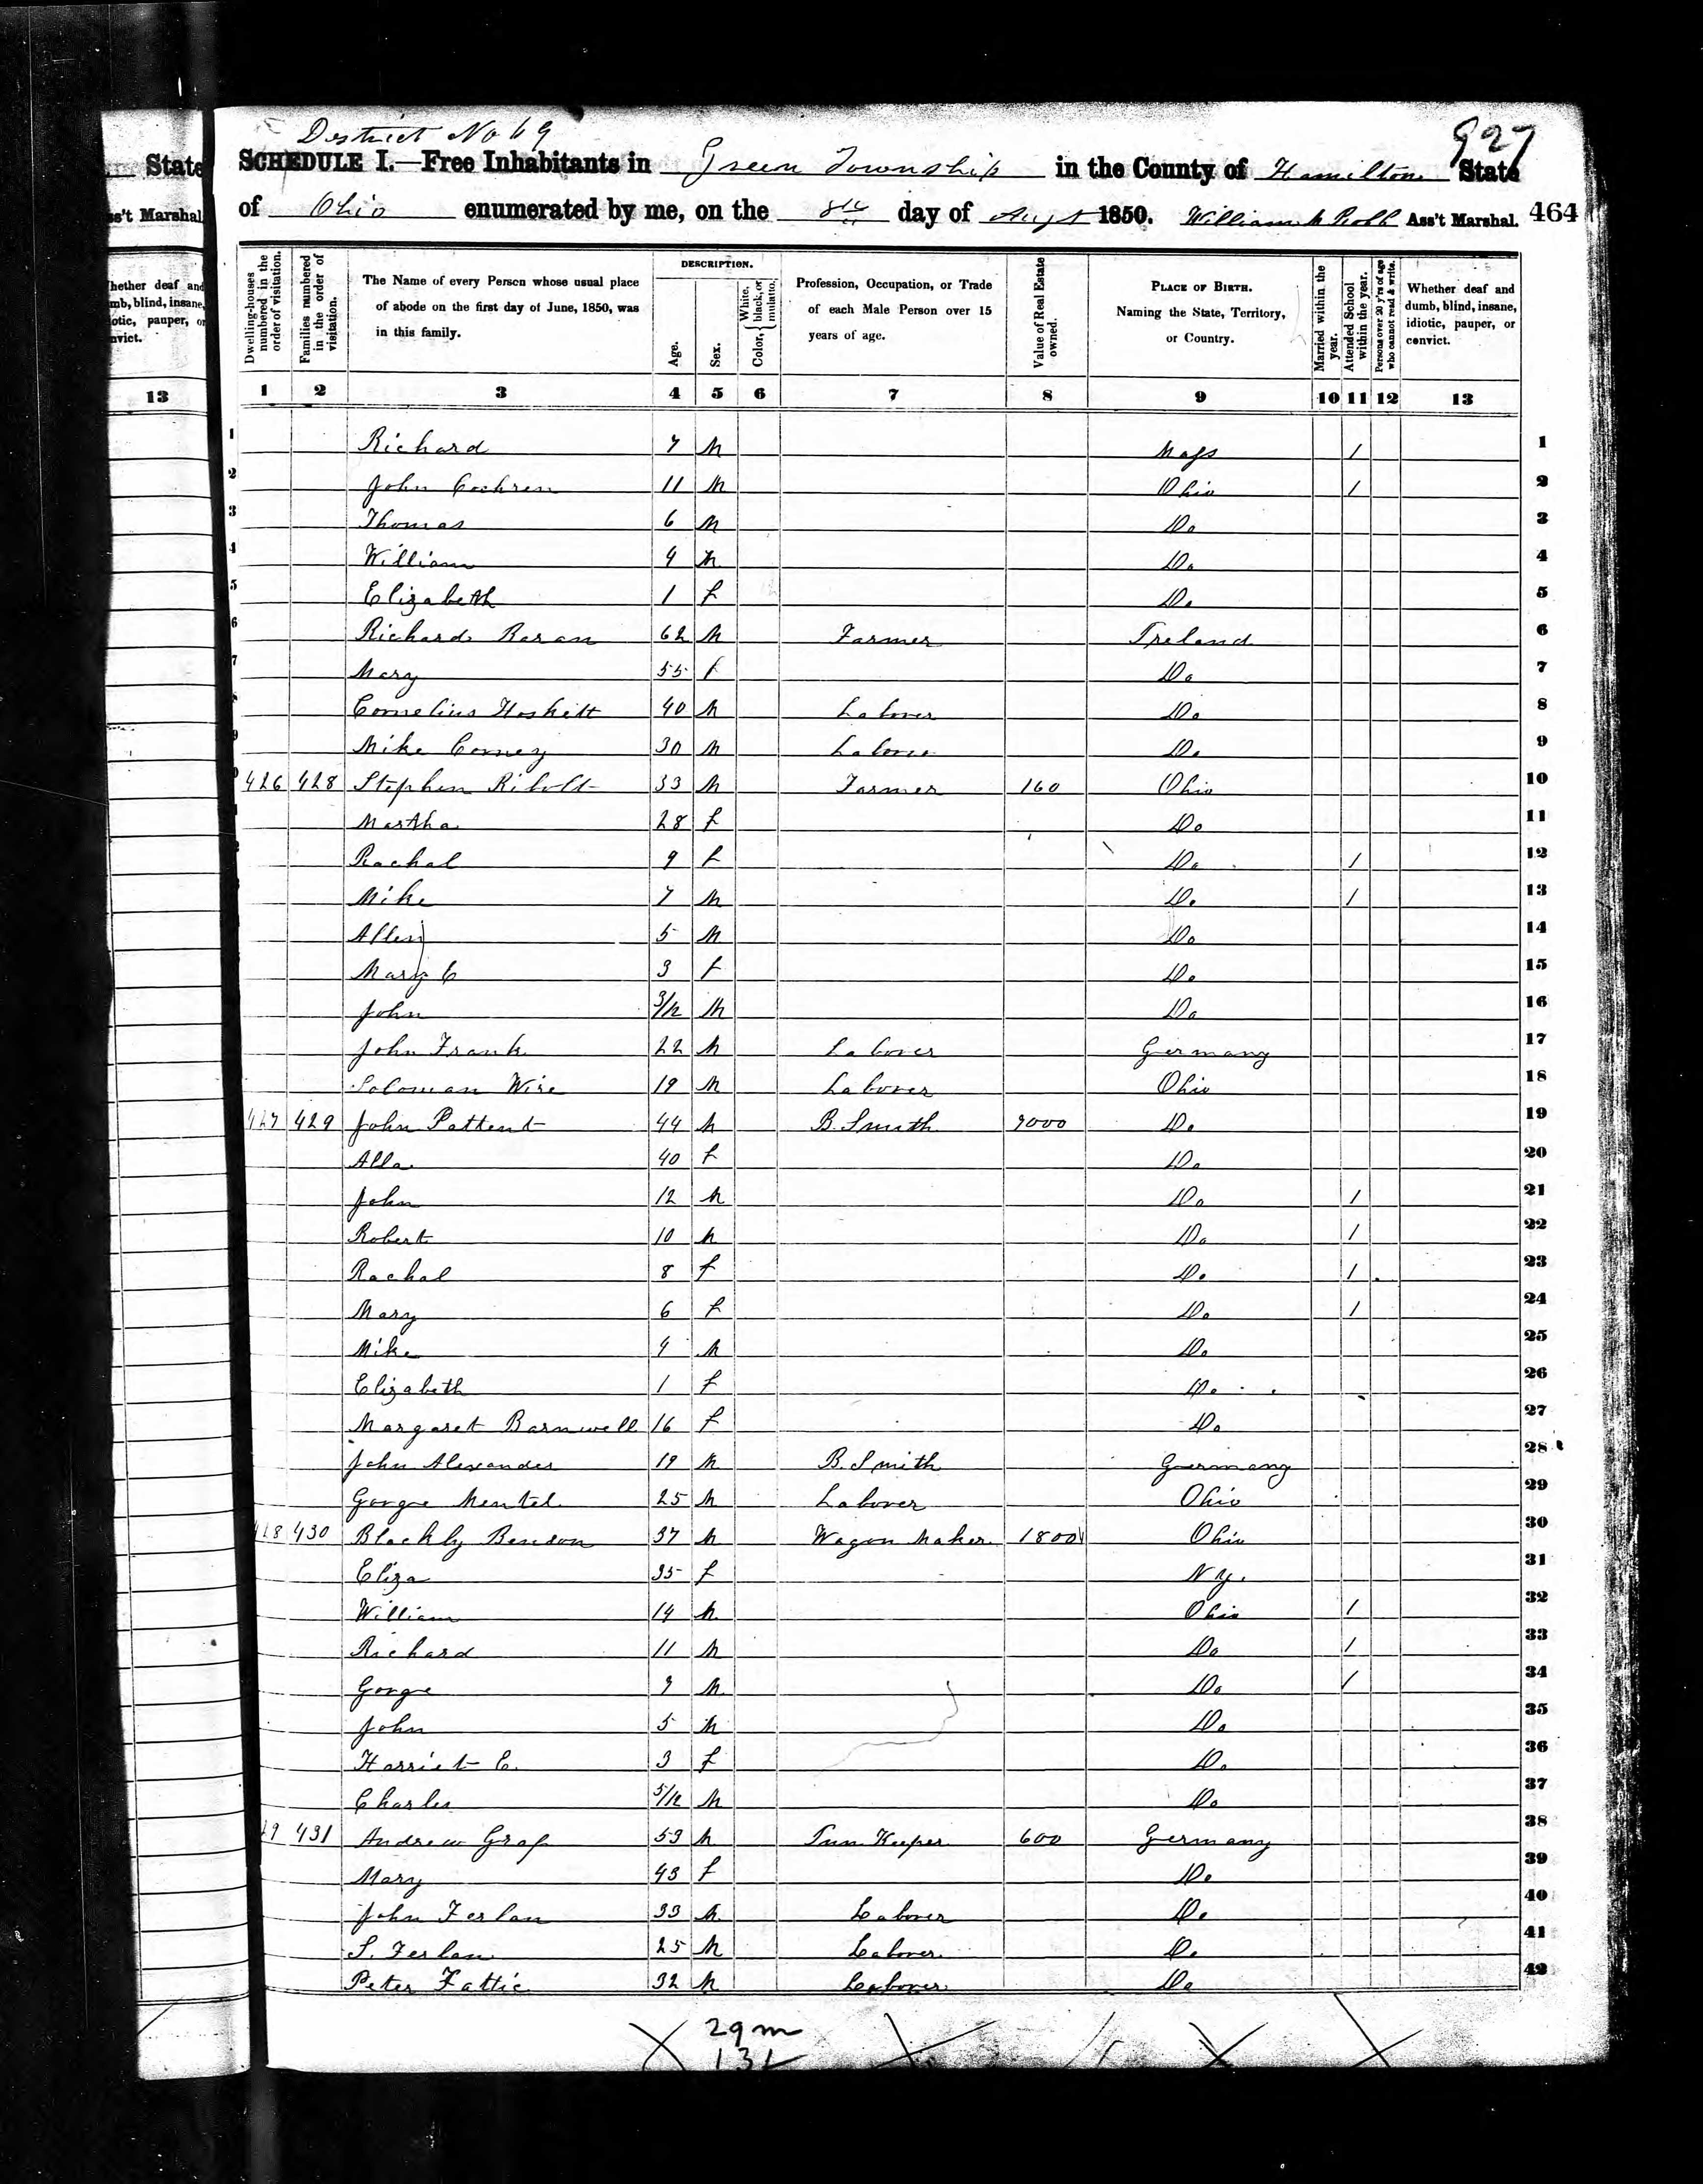 District No 69
927
SCHEDULE I.—Free Inhabitants in Green Township in the County of Hamilton State
of Ohio enumerated by me, on the 8th day of Augt 1850. William Ass't Marshal. 464
State
ss't Marshal.
hether deaf and
mb, blind, insane,
otic, pauper, or
nvict.
13
Dwelling-houses numbered in the order of visitation.
Families numbered in the order of visitation.
The Name of every Person whose usual place of abode on the first day of June, 1850, was in this family.
DESCRIPTION.
Age.
Sex.
Color, { White, black, or mulatto.
Profession, Occupation, or Trade of each Male Person over 15 years of age.
Value of Real Estate owned.
PLACE OF BIRTH. Naming the State, Territory, or Country.
Married within the year.
Attended School within the year.
Persons over 20 y'rs of age who cannot read & write.
Whether deaf and dumb, blind, insane, idiotic, pauper, or convict.
1 2 3 4 5 6 7 8 9 10 11 12 13
1 Richard 7 M Mass 1 1
2 John Cochren 11 M Ohio 1 2
3 Thomas 6 M Do 3
4 William 4 M Do 4
5 Elizabeth 1 F Do 5
6 Richard 62 M Farmer Ireland 6
7 Mary 55 F Do 7
8 Cornelius Hoskitt 40 M Laborer Do 8
9 Mike 30 M Laborer Do 9
426 428 Stephen Ribolt 33 M Farmer 160 Ohio 10
Martha 28 F Do 11
Rachal 9 F Do 1 12
Mike 7 M Do 1 13
Allen 5 M Do 14
Mary C 3 F Do 15
John 3/12 M Do 16
John Frank 22 M Laborer Germany 17
Soloman Wise 19 M Laborer Ohio 18
427 429 John Pattent 44 M B. Smith Do 19
Alla 40 F Do 20
John 12 M Do 1 21
Robert 10 M Do 1 22
Rachal 8 F Do 1 23
Mary 6 F Do 1 24
Mike 4 M Do 25
Elizabeth 1 F Do 26
Margaret Barnwell 16 F Do 27
John Alexander 19 M B. Smith Germany 28
Gorge Mentel 25 M Laborer Ohio 29
428 430 Blackly Benson 37 M Wagon Maker 1800 Ohio 30
Eliza 35 F N Y. 31
William 14 M Ohio 1 32
Richard 11 M Do 1 33
Gorge 9 M Do 1 34
John 5 M Do 35
Harriet C. 3 F Do 36
Charles 5/12 M Do 37
29 431 Andrew Graf 53 M Inn Keeper 600 Germany 38
Mary 43 F Do 39
John Ferlan 33 M Laborer Do 40
S. Ferlan 25 M Laborer Do 41
Peter Fattic 32 M Laborer Do 42
29 m
13 f